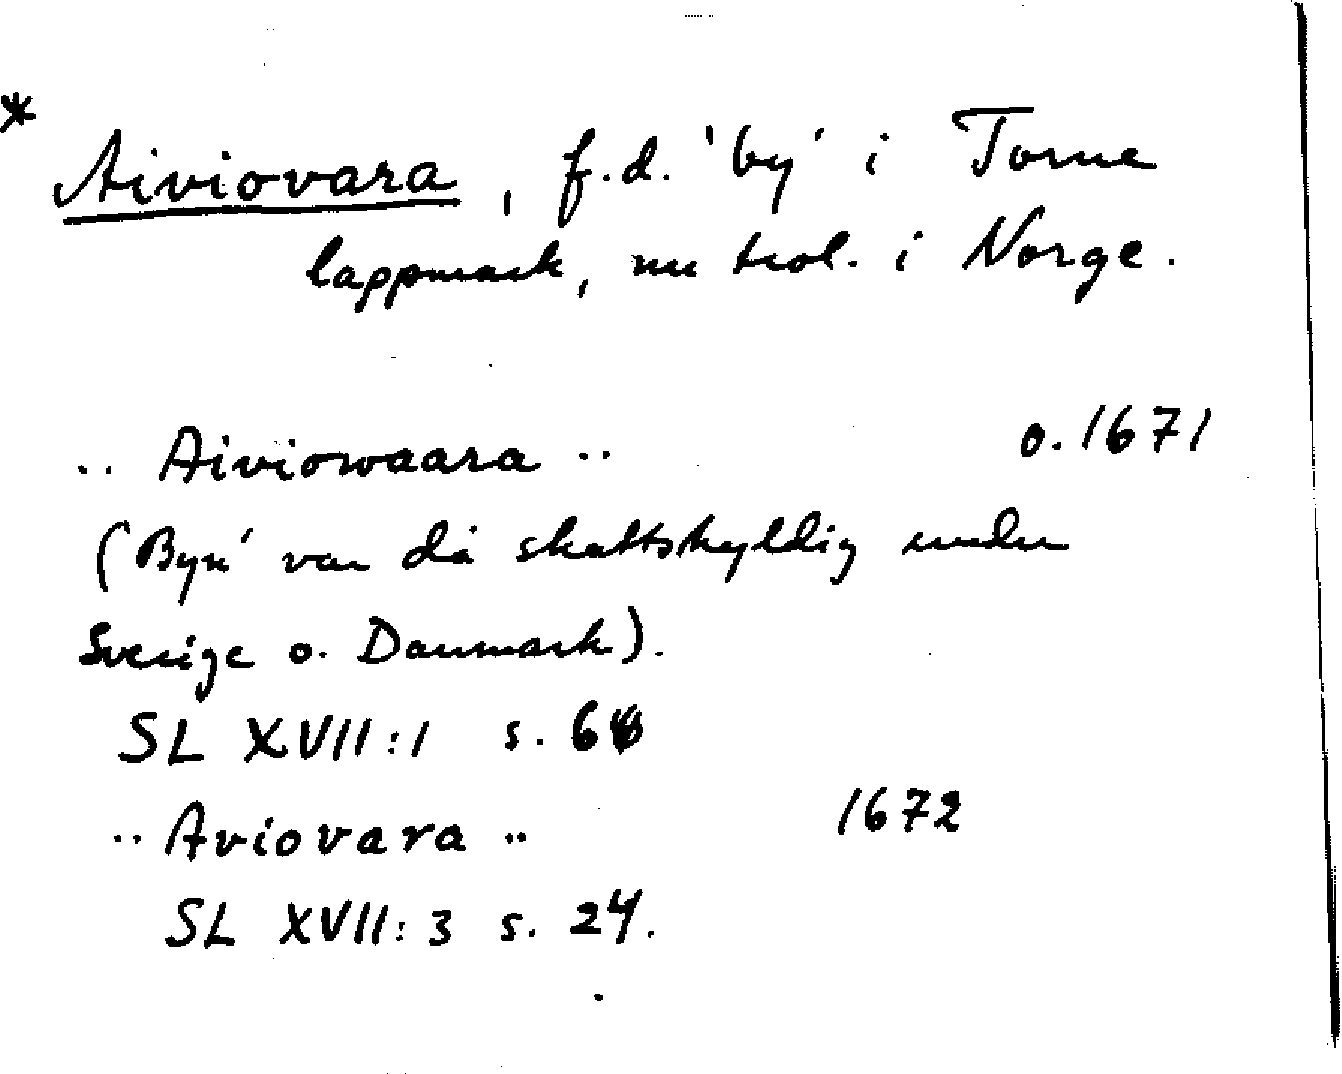 *
Aiviovara, f.d. 'by' i Torne
lappmark, nu trol. i Norge.
.. Aiviowaara .. o. 1671
('Byn' var då skattskyldig under
Sverige o. Danmark).
SL XVII:1 s.
.. Aviovara .. 1672
SL XVII:3 s. 24.